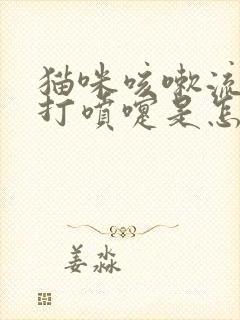 猫咪咳嗽流
打喷嚏是怎
姜淼